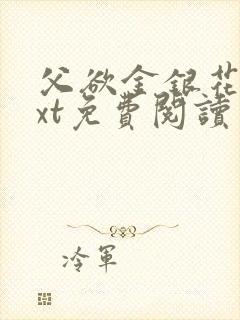 父欲金銀花
xt免費閱讀
冷軍